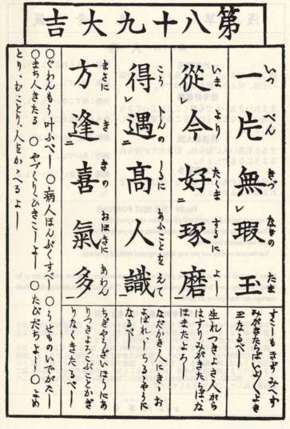 第八十九大吉
いつ ぺん きづ なきの たま
一片無レ瑕玉
すこしもきずみへず
みがきたらばいよ〳〵よき
玉なるべし
いま より たくま するに よし
從今好二琢磨一
生れつきよき人がら
みがきたらばな
ほまたよろし
得レ遇二高人識一
なだかき人にきゝお
よばれしらるゝやうに
なるべし
まさに きの おほきに あわん
方逢二喜氣多一
ちぎやうざいほうにあ
りつきよろこぶことかぎ
りなくきたるべし
○ぐわんもう叶ふべし ○病人ほんぷくすべし ○うせものいでがたし
○まち人きたる ○やづくりひきこしよし ○たびだちよし ○よめ
とり、むことり、人をかゝへるよし